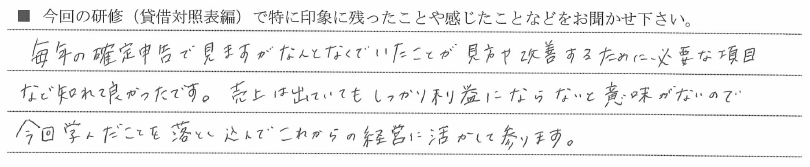 ■ 今回の研修（貸借対照表編）で特に印象に残ったことや感じたことなどをお聞かせ下さい。
毎年の確定申告で見ますがなんとなくでいたことが見方や改善するために必要な項目
など知れて良かったです。売上は出ていてもしっかり利益にならないと意味がないので
今回学んだことを落とし込んでこれからの経営に活かして参ります。